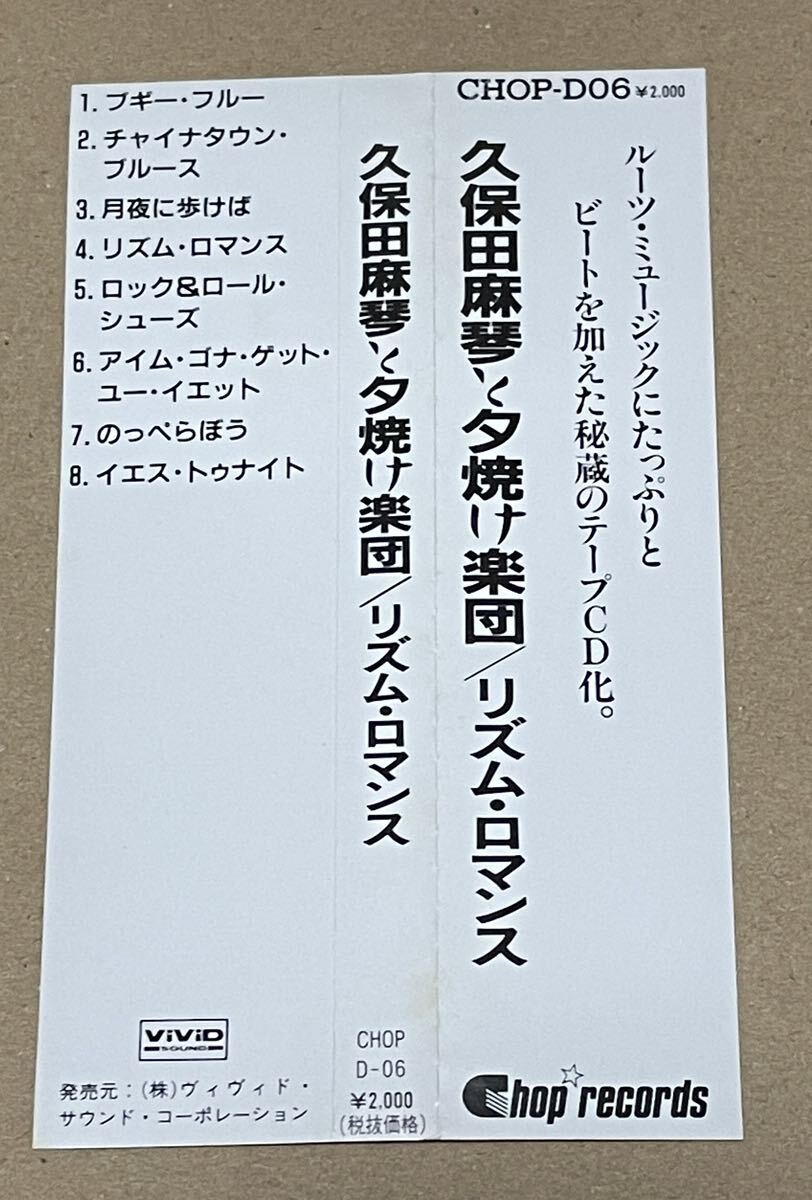 CHOP-D06 ¥2.000
ルーツ・ミュージックにたっぷりと
ビートを加えた秘蔵のテープCD化。
久保田麻琴と夕焼け楽団/リズム・ロマンス
Chop records
久保田麻琴と夕焼け楽団/リズム・ロマンス
CHOP
D-06
¥2,000
(税抜価格)
1. ブギー・フルー
2. チャイナタウン・
ブルース
3. 月夜に歩けば
4. リズム・ロマンス
5. ロック&ロール・
シューズ
6. アイム・ゴナ・ゲット・
ユー・イエット
7. のっぺらぼう
8. イエス・トゥナイト
ViViD
SOUND
発売元:(株)ヴィヴィド・
サウンド・コーポレーション